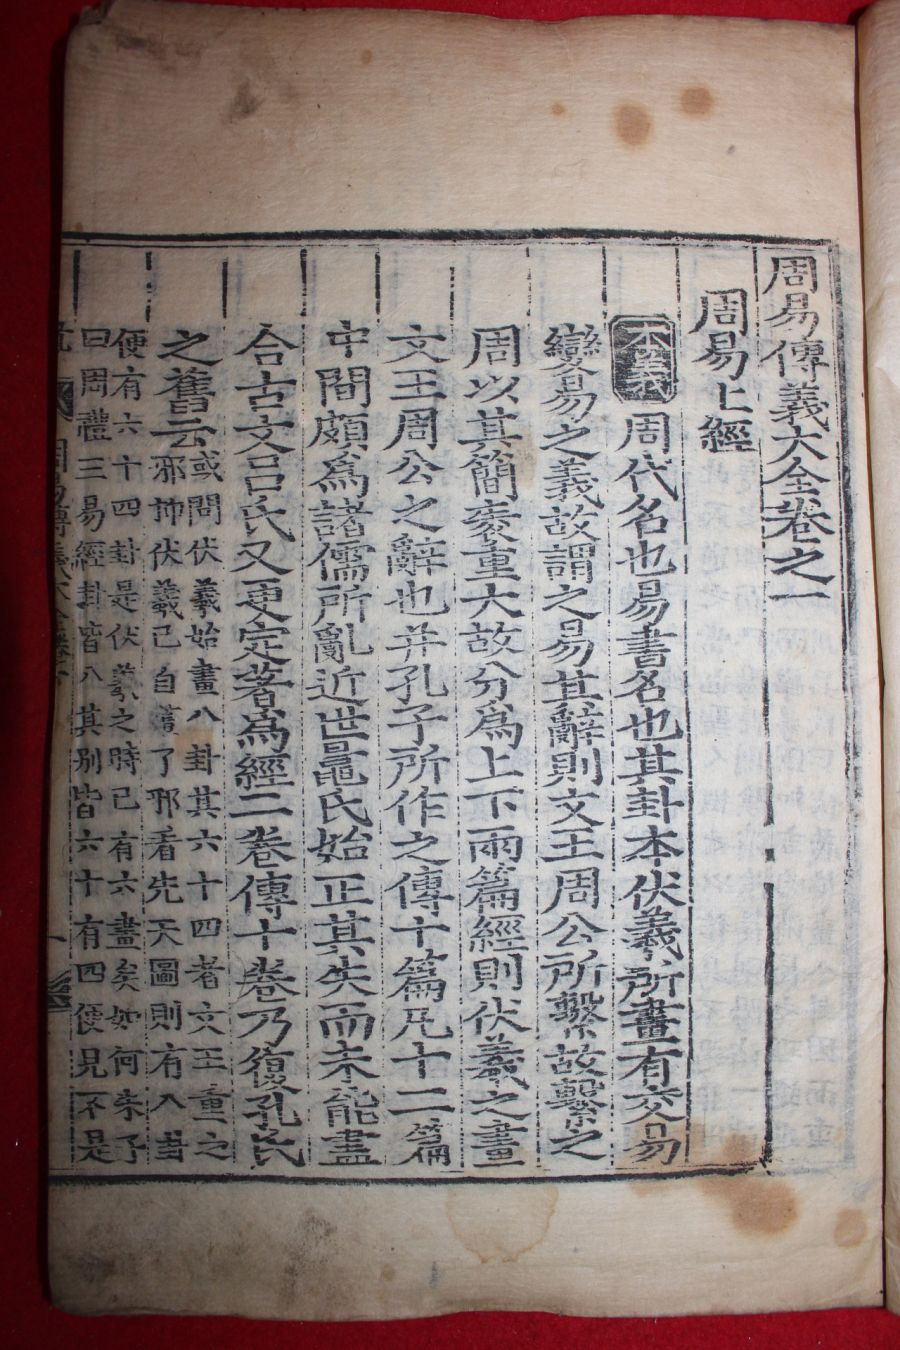 周易傳義大全卷之一
周易上經
本義 周代名也易書名也其卦本伏羲所畫有交易
變易之義故謂之易其辭則文王周公所繫故繫之
周以其簡袠重大故分爲上下兩篇經則伏羲之畫
文王周公之辭也并孔子所作之傳十篇凡十二篇
中間頗爲諸儒所亂近世晁氏始正其失而未能盡
合古文吕氏又更定著爲經二卷傳十卷乃復孔氏
之舊云
或問伏羲始畫八卦其六十四者文王重之
邪抑伏羲已自畫了邪看先天圖則有八卦
便有六十四卦是伏羲之時已有六畫矣如何朱子
曰周禮三易經卦皆八其別皆六十有四便見不是